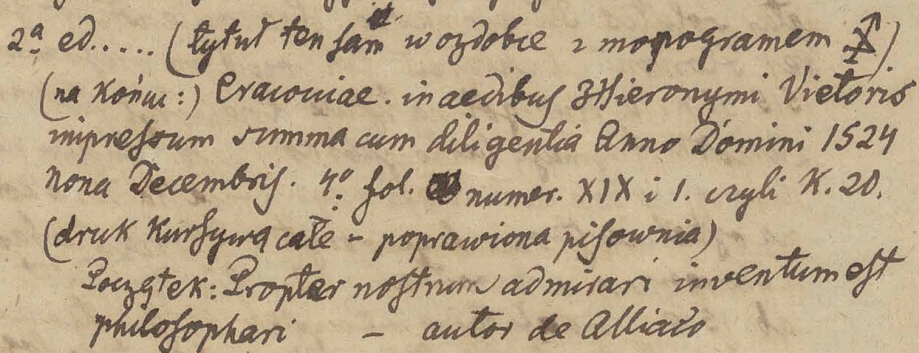 2ª ed..... (tytuł ten sam w ozdobce z monogramem )
(na końcu:) Cracoviae. in aedibus Hieronymi Vietoris
impressum summa cum diligentia Anno Domini 1524
nona Decembris. 4º fol. numer. XIX i 1. czyli K. 20.
(druk kursywą całe – poprawiona pisownia)
Początek: Propter nostrum admirari inventum est
philosophari – autor de Alliaco